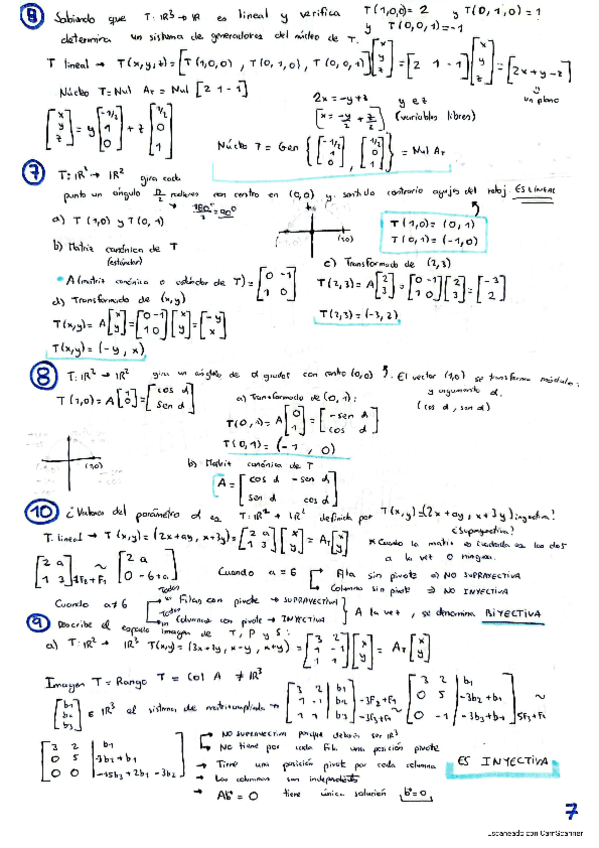 ⑧ Sabiendo que T: ℝ³→ℝ es lineal y verifica T(1,0,0)= 2 y T(0,1,0)=1
y T(0,0,1)=-1
determina un sistema de generadores del núcleo de T.
T lineal → T(x,y,z)=[T(1,0,0), T(0,1,0), T(0,0,1)] [x y z] = [2 1 -1] [x y z] = [2x+y-z]
Núcleo T = Nul A_T = Nul [2 1 -1]
2x = -y+z y e z
un plano
[x y z] = y [-1/2 1 0] + z [1/2 0 1]
x = -y/2 + z/2 (variables libres)
Núcleo T = Gen {[-1/2 1 0], [1/2 0 1]} = Nul A_T
⑦ T: ℝ²→ℝ² gira cada
punto un ángulo π/2 radianes con centro en (0,0) y sentido contrario agujas del reloj. ES LINEAL
→ 180°/2 = 90°
a) T(1,0) y T(0,1)
(1,0)
T(1,0)= (0,1)
T(0,1)= (-1,0)
b) Matriz canónica de T
(estándar)
A (matriz canónica o estándar de T) = [0 -1; 1 0]
c) Transformado de (2,3)
T(2,3)= A[2 3] = [0 -1; 1 0][2 3] = [-3 2]
T(2,3)= (-3,2)
d) Transformado de (x,y)
T(x,y)= A[x y] = [0 -1; 1 0][x y] = [-y x]
T(x,y)= (-y, x)
⑧ T: ℝ²→ℝ² gira un ángulo de α grados con centro (0,0). El vector (1,0) se transforma
y argumento α.
T(1,0)= A[1 0] = [cos α sen α]
(cos α, sen α)
a) Transformado de (0,1):
T(0,1)= A[0 1] = [-sen α cos α]
T(0,1)= (-1, 0)
(1,0)
b) Matriz canónica de T
A = [cos α -sen α; sen α cos α]
⑩ ¿Valores del parámetro a es T: ℝ²→ℝ² definida por T(x,y)=(2x+ay, x+3y) inyectiva?
¿suprayectiva?
T. lineal → T(x,y)= (2x+ay, x+3y) = [2 a; 1 3][x y] = A_T[x y]
* Cuando la matriz es cuadrada es los dos
a la vez o ninguna.
[2 a; 1 3] ~ [2 a; 0 -6+a]
Cuando a=6 → Fila sin pivote ⇒ NO SUPRAYECTIVA
→ Columna sin pivote ⇒ NO INYECTIVA
Cuando a≠6 → Todas las Filas con pivote → SUPRAYECTIVA
→ Todas las columnas con pivote → INYECTIVA
A la vez, se denomina BIYECTIVA
⑨ Describe el espacio imagen de T, P y S:
a) T: ℝ²→ℝ³ T(x,y)= (3x+2y, x-y, x+y) = [3 2; 1 -1; 1 1][x y] = A_T[x y]
Imagen T = Rango T = Col A ≠ ℝ³
[b1 b2 b3] ∈ ℝ³ el sistema de matriz ampliada → [3 2 b1; 1 -1 b2; 1 1 b3] -3F2+F1 -3F3+F1 ~ [3 2 b1; 0 5 -3b2+b1; 0 -1 -3b3+b1] 5F3+F2 ~
[3 2 b1; 0 5 -3b2+b1; 0 0 -15b3+2b1-3b2]
→ NO SUPRAYECTIVA porque debería ser ℝ³
→ No tiene por cada fila una posición pivote
→ Tiene una posición pivote por cada columna
→ Las columnas son independientes
→ Ab = 0 tiene única solución b = 0
ES INYECTIVA
7
Escaneado con CamScanner